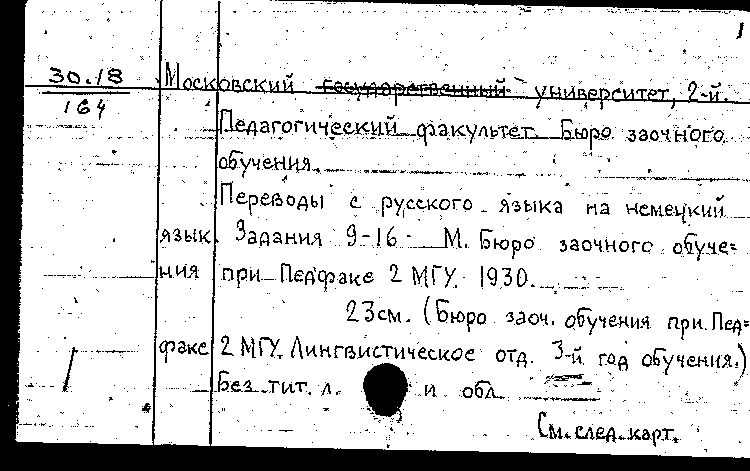 1
30.18 Московский государственный университет, 2-й.
164
Педагогический факультет. Бюро заочного
обучения.
Переводы с русского языка на немецкий
язык. Задания 9-16. М. Бюро заочного обуче=
ния при Педфаке 2 МГУ. 1930.
23см. (Бюро заоч. обучения при Пед=
факе 2 МГУ. Лингвистическое отд. 3-й год обучения.)
Без тит. л. и обл.
См. след. карт.